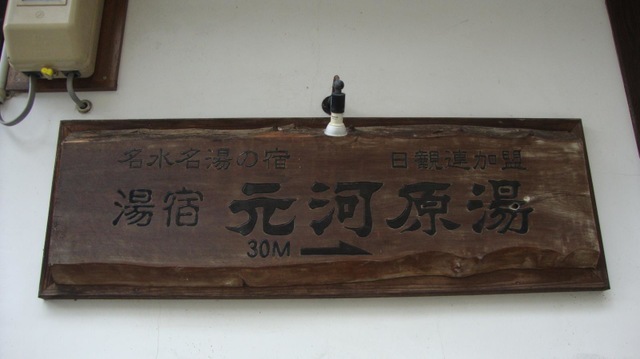 名水名湯の宿 日観連加盟
湯宿 元河原湯
30M →